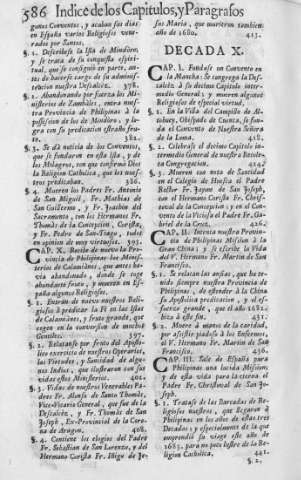 586 Indice de los Capitulos, y Paragrafos
gunos Conventos, y acaban sus dias
en España varios Religiosos vene-
rados por Santos.
§. 1. Describese la Isla de Mindoro,
y se trata de su conquista espiri-
tual, que se consiguiò en parte, an-
tes de hacerse cargo de su adminis-
tracion nuestra Descalcèz. 378.
§. 2. Abandonada por fuerza los Mi-
nisterios de Zambales, entra nues-
tra Provincia de Philipinas à la
possesion de los de Mindoro, y lo-
gra con su predicacion estraño fru-
to. 382.
§. 3. Se dà noticia de los Conventos,
que se fundaron en esta isla, y de
los Milagros, con que confirmò Dios
la Religion Catholica, que los nues-
tros predicaban. 386.
§. 4. Mueren los Padres Fr. Antonio
de San Miguèl, Fr. Mathias de
San Guillermo, y Fr. Joachin del
Sacramento, con los Hermanos Fr.
Thomàs de la Concepcion, Corista,
y Fr. Pedro de San-Tiago, todos
en opinion de muy virtuosos. 393.
CAP. X. Buelve de nuevo la Pro-
vincia de Philipinas los Minis-
terios de Calamianes, que antes ha-
via abandonado, donde se coge
abundante fruto, y mueren en Es-
paña algunos Religiosos.
§. 1. Entran de nuevo nuestros Reli-
giosos à predicar la Fè en las Islas
de Calamianes, y fruto grande, que
cogen en la conversion de muchos
Gentiles. 397.
§. 2. Relatanse por fruto del Aposto-
lico exercicio de nuestros Operarios,
las Virtudes, y Santidad de algu-
nos Indios, que ilustraron con sus
vidas estos Ministerios. 402.
§. 3. Vidas de nuestros Venerables Pa-
dres Fr. Alonso de Santo Thomàs,
Vice-Vicario General, que fue de la
Descalcèz, y Fr. Thomàs de San
Joseph, Ex-Provincial de la Coro-
na de Aragon. 408.
§. 4. Contiene los elogios del Padre
Fr. Sebastian de San Lorenzo, y del
Hermano Corista Fr. Iñigo de Je-
sus Maria, que murieron tambien
año de 1680. 413.
DECADA X.
CAP. I. Fundase un Convento en
la Mancha: Se congrega la Des-
calcèz à su decimo Capitulo inter-
medio General: y mueren algunos
Religiosos de especial virtud.
§. 1. En la Villa del Campillo de Al-
tobuey, Obispado de Cuenca, se fun-
da el Convento de Nuestra Señora
de la Loma. 418.
§. 2. Celebrase el decimo Capitulo in-
termedio General de nuestra Recole-
ta Congregacion. 424.
§. 3. Mueren con nota de Santidad
en el Colegio de Huesca el Padre
Rector Fr. Jayme de San Joseph,
con el Hermano Corista Fr. Christo-
val de la Concepcion: y en el Con-
vento de la Viciosa el Padre Fr. Ga-
briel de la Cruz. 426.
CAP. II. Intenta nuestra Provin-
cia de Philipinas Mission à la
Gran China: y se escribe la Vida
del V. Hermano Fr. Martin de San
Francisco.
§. 1. Se relatan las ansias, que ha te-
nido siempre nuestra Provincia de
Philipinas, de estender à la China
su Apostolica predicacion, y el es-
fuerzo grande, que el año 1682.
hizo à este fin. 431.
§. 2. Muere à manos de la caridad,
por assistir piadoso à los Enfermos,
el V. Hermano Fr. Martin de San
Francisco. 436.
CAP. III. Sale de España para
Philipinas una lucida Mission;
y de esta vida para la eterna el
Padre Fr. Christoval de San Jo-
seph.
§. 1. Tratase de las Barcadas de Re-
ligiosos nuestros, que llegaron à
Philipinas en los años de estas tres
Decadas; y especialmente de la que
emprendiò su viage este año de
1683. para no poco lustre de la Re-
ligion Catholica. 441.
§. 2.